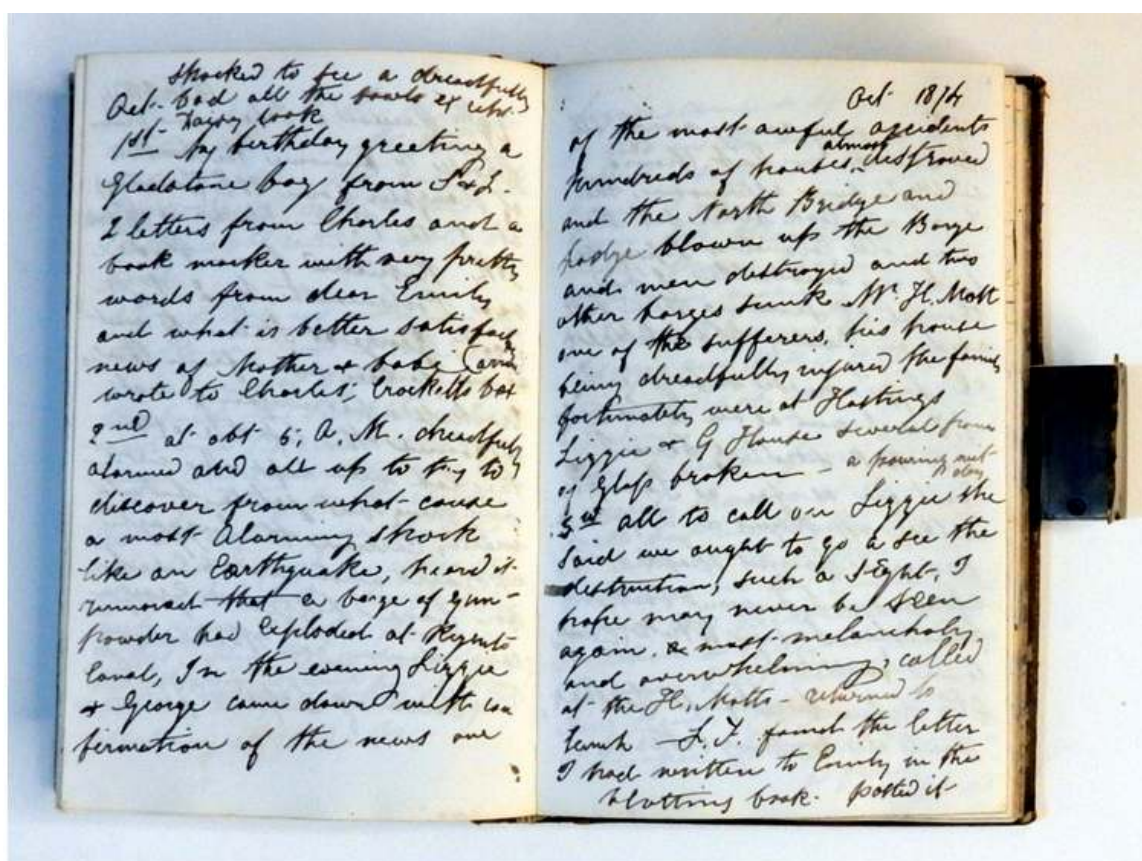 shocked to see a dreadfully
Oct- bad all the bowls &
Davey took
1st My birthday greeting a
Gladstone bag from S & L.
2 letters from Charles and a
book marker with very pretty
words from dear Emily
and what is better satisfactory
news of Mother & baby (
wrote to Charles; Crocketts box
2nd at abt 5, A.M. dreadfully
alarmed and all up to try to
discover from what cause
a most Alarming shock
like an Earthquake, heard it
rumoured that a barge of gun-
powder had Exploded at Regents
Canal, In the evening Lizzie
& George came down with con
firmation of the news one
Oct 1874
of the most awful accidents
almost
hundreds of houses, destroyed
and the North Bridge and
Lodge blown up the Barge
and men destroyed and two
other barges sunk Mr H. Mott
one of the sufferers, his house
being dreadfully injured the family
fortunately were at Hastings
Lizzie & G House several panes
of Glass broken - a pouring wet
day
3rd all to call on Lizzie she
said we ought to go a see the
destruction, such a sight, I
hope may never be seen
again. a most melancholy
and overwhelming, called
at the H. Motts - returned to
lunch - L.T. found the letter
I had written to Emily in the
blotting book. posted it